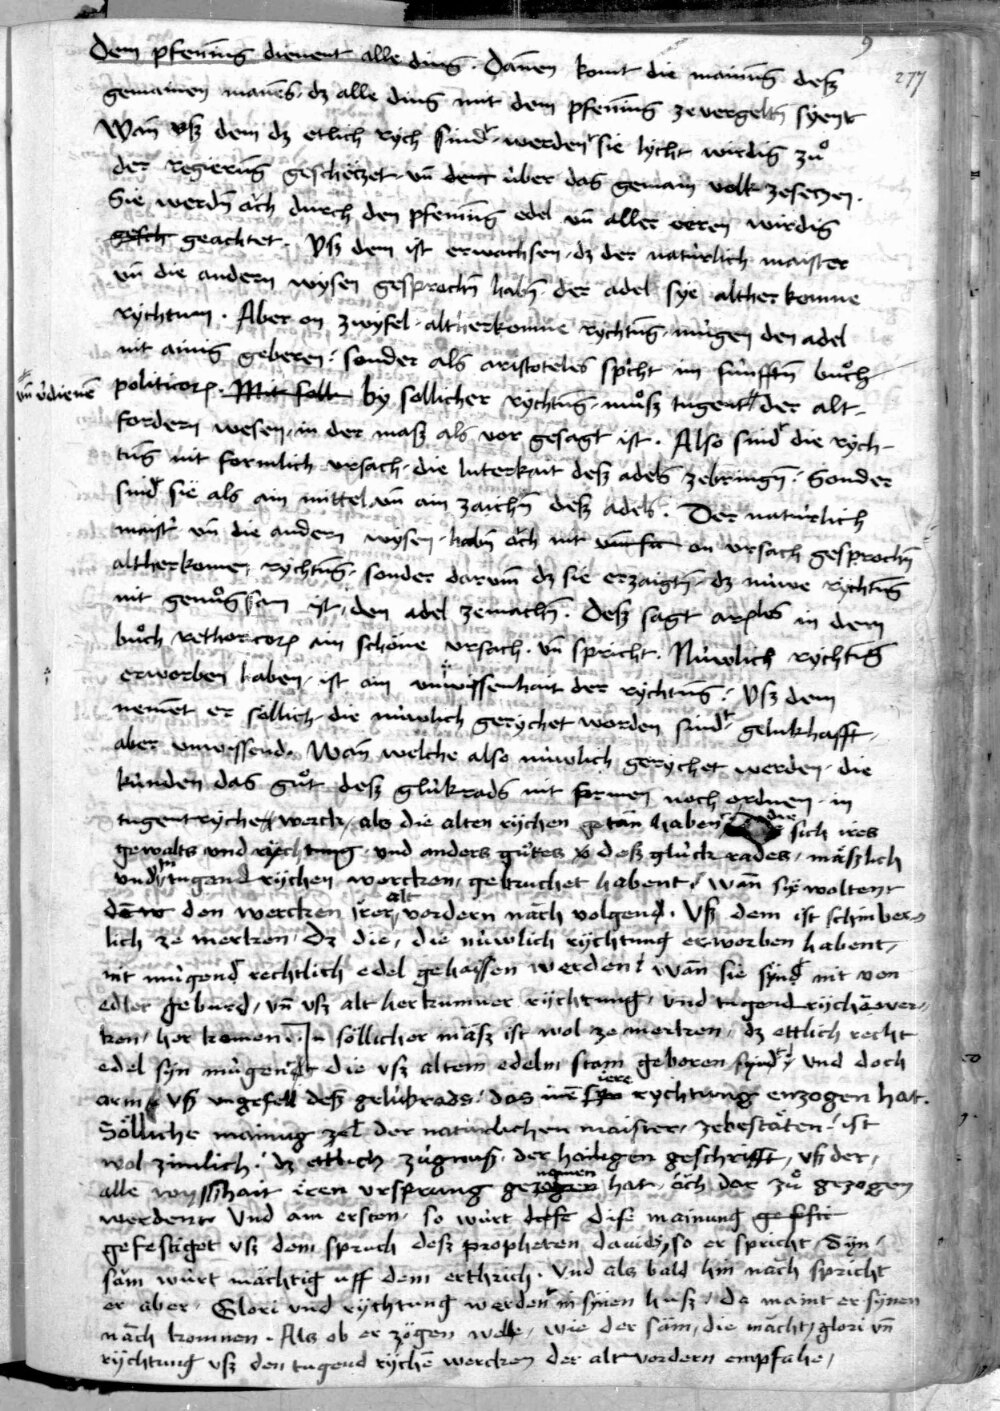 9
277
Dem pfennĩg dienent alle ding. Dañen komt die mainũg deß
gemainen mañes, dz alle ding mit dem pfenñig ze vergeltñ syent
Wañ vß dem dz etlich rych sind, werden sie lycht wirdig zů
der regierũg geschetzet, vñ dem über das gemain volk zesetzen.
Sie werdñ och durch den pfenñig edel vñ aller eeren wirdig
gesch geachtet. Vß dem ist erwachsen, dz der natürlich maister
vñ die andern wysen gesprochñ habñ der adel sye altherkomne
rychtum. Aber on zwyfel altherkomne rychtũg mügen den adel
nit ainig geberen: sonder als aristoteles spricht im fünfftñ bůch
politicorum. Mit soll by sollicher rychtũg, můß tugent der alt-
vñ v̾dienẽ
fordern wesen, in der maß als vor gesagt ist. Also sind die rych-
tũg nit formlich vrsach, die luterkait deß adels zebringñ. Sonder
sind sie als ain mittel vñ ain zaichñ deß adels. Der natürlich
maister vñ die andern wysen, habñ och nit on vrsach gesprochñ
altherkomen rychtũg, sonder darvm̃ dz sie erzaigtñ, dz nüwe rychtũg
nit genůgsam ist, den adel zemachñ. Deß sagt arples in dem
bůch rethoricorum ain schöne vrsach. vñ spricht. Nüwlich rychtũg
erworben haben, ist ain vnwissenhait der rychtũg. Vß dem
nemẽt er söllich, die nüwlich gerychet worden sind, gelukhafft,
aber vnwissend. Wañ welche also nüwlich gerychet werden, die
kunden das gůt deß glükrads nit formen noch ordnen, in
tugentryche werck, als die alten rychen getän haben, die sich ires
gewalts vnd rychtung, vnd anders gůtes deß glückrades, mäßlich
vnd in tugend rychen wercken, gebruchet habent, wañ sÿ woltent
den wercken irer alt vordern näch volgend. Vß dem ist schinber-
lich ze merken, Dz die, die nüwlich rychtung erworben habent,
nit mügend rechtlich edel gehaissen werden: wañ sie synd nit von
edler geburd, vñ vß alt herkumner rychtung, vnd tugend rychẽ wer-
ken, her komen. In söllicher mäß ist wol ze merken, dz ettlich recht
edel syn mügend, die vß altem edelm stam geboren synd, vnd doch
arm, vß vngefell deß gelükrads, das iere rychtung enzogen hat.
Sölliche mainug der natürlichen maister, zebestäten, ist
wol zimlich, dz ettlich zügnuß, der hailigen geschrifft, vß der,
alle wyßhait iren vrsprung genomen hat, och dar zů gezogen
werdent. Vnd am ersten, so würt dise mainung
gefestiget vß dem spruch deß propheten dauids, so er spricht, Syn
säm würt mächtig vff dem erthrich. Vnd als bald hin näch spricht
er aber, Glori vnd rychtung werden in synen huß, da maint er synen
näch komnen. Als ob er zögen welle, wie der säm, die mächt, glori vñ
rychtung vß den tugend rychẽ wercken der alt vordern empfahe,